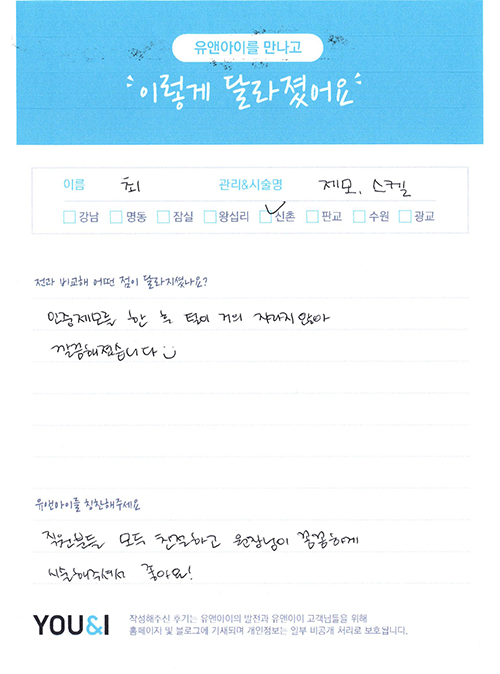 유앤아이를 만나고
이렇게 달라졌어요
이름 최 관리&시술명 제모, 스케일
강남 명동 잠실 왕십리 신촌 판교 수원 광교
전과 비교해 어떤 점이 달라지셨나요?
인중제모를 한 후 털이 거의 자라지 않아
깔끔해졌습니다
유앤아이를 칭찬해주세요
직원분들 모두 친절하고 원장님이 꼼꼼하게
시술해주셔서 좋아요!
YOU&I
작성해주신 후기는 유앤아이의 발전과 유앤아이 고객님들을 위해
홈페이지 및 블로그에 기재되며 개인정보는 일부 비공개 처리로 보호됩니다.